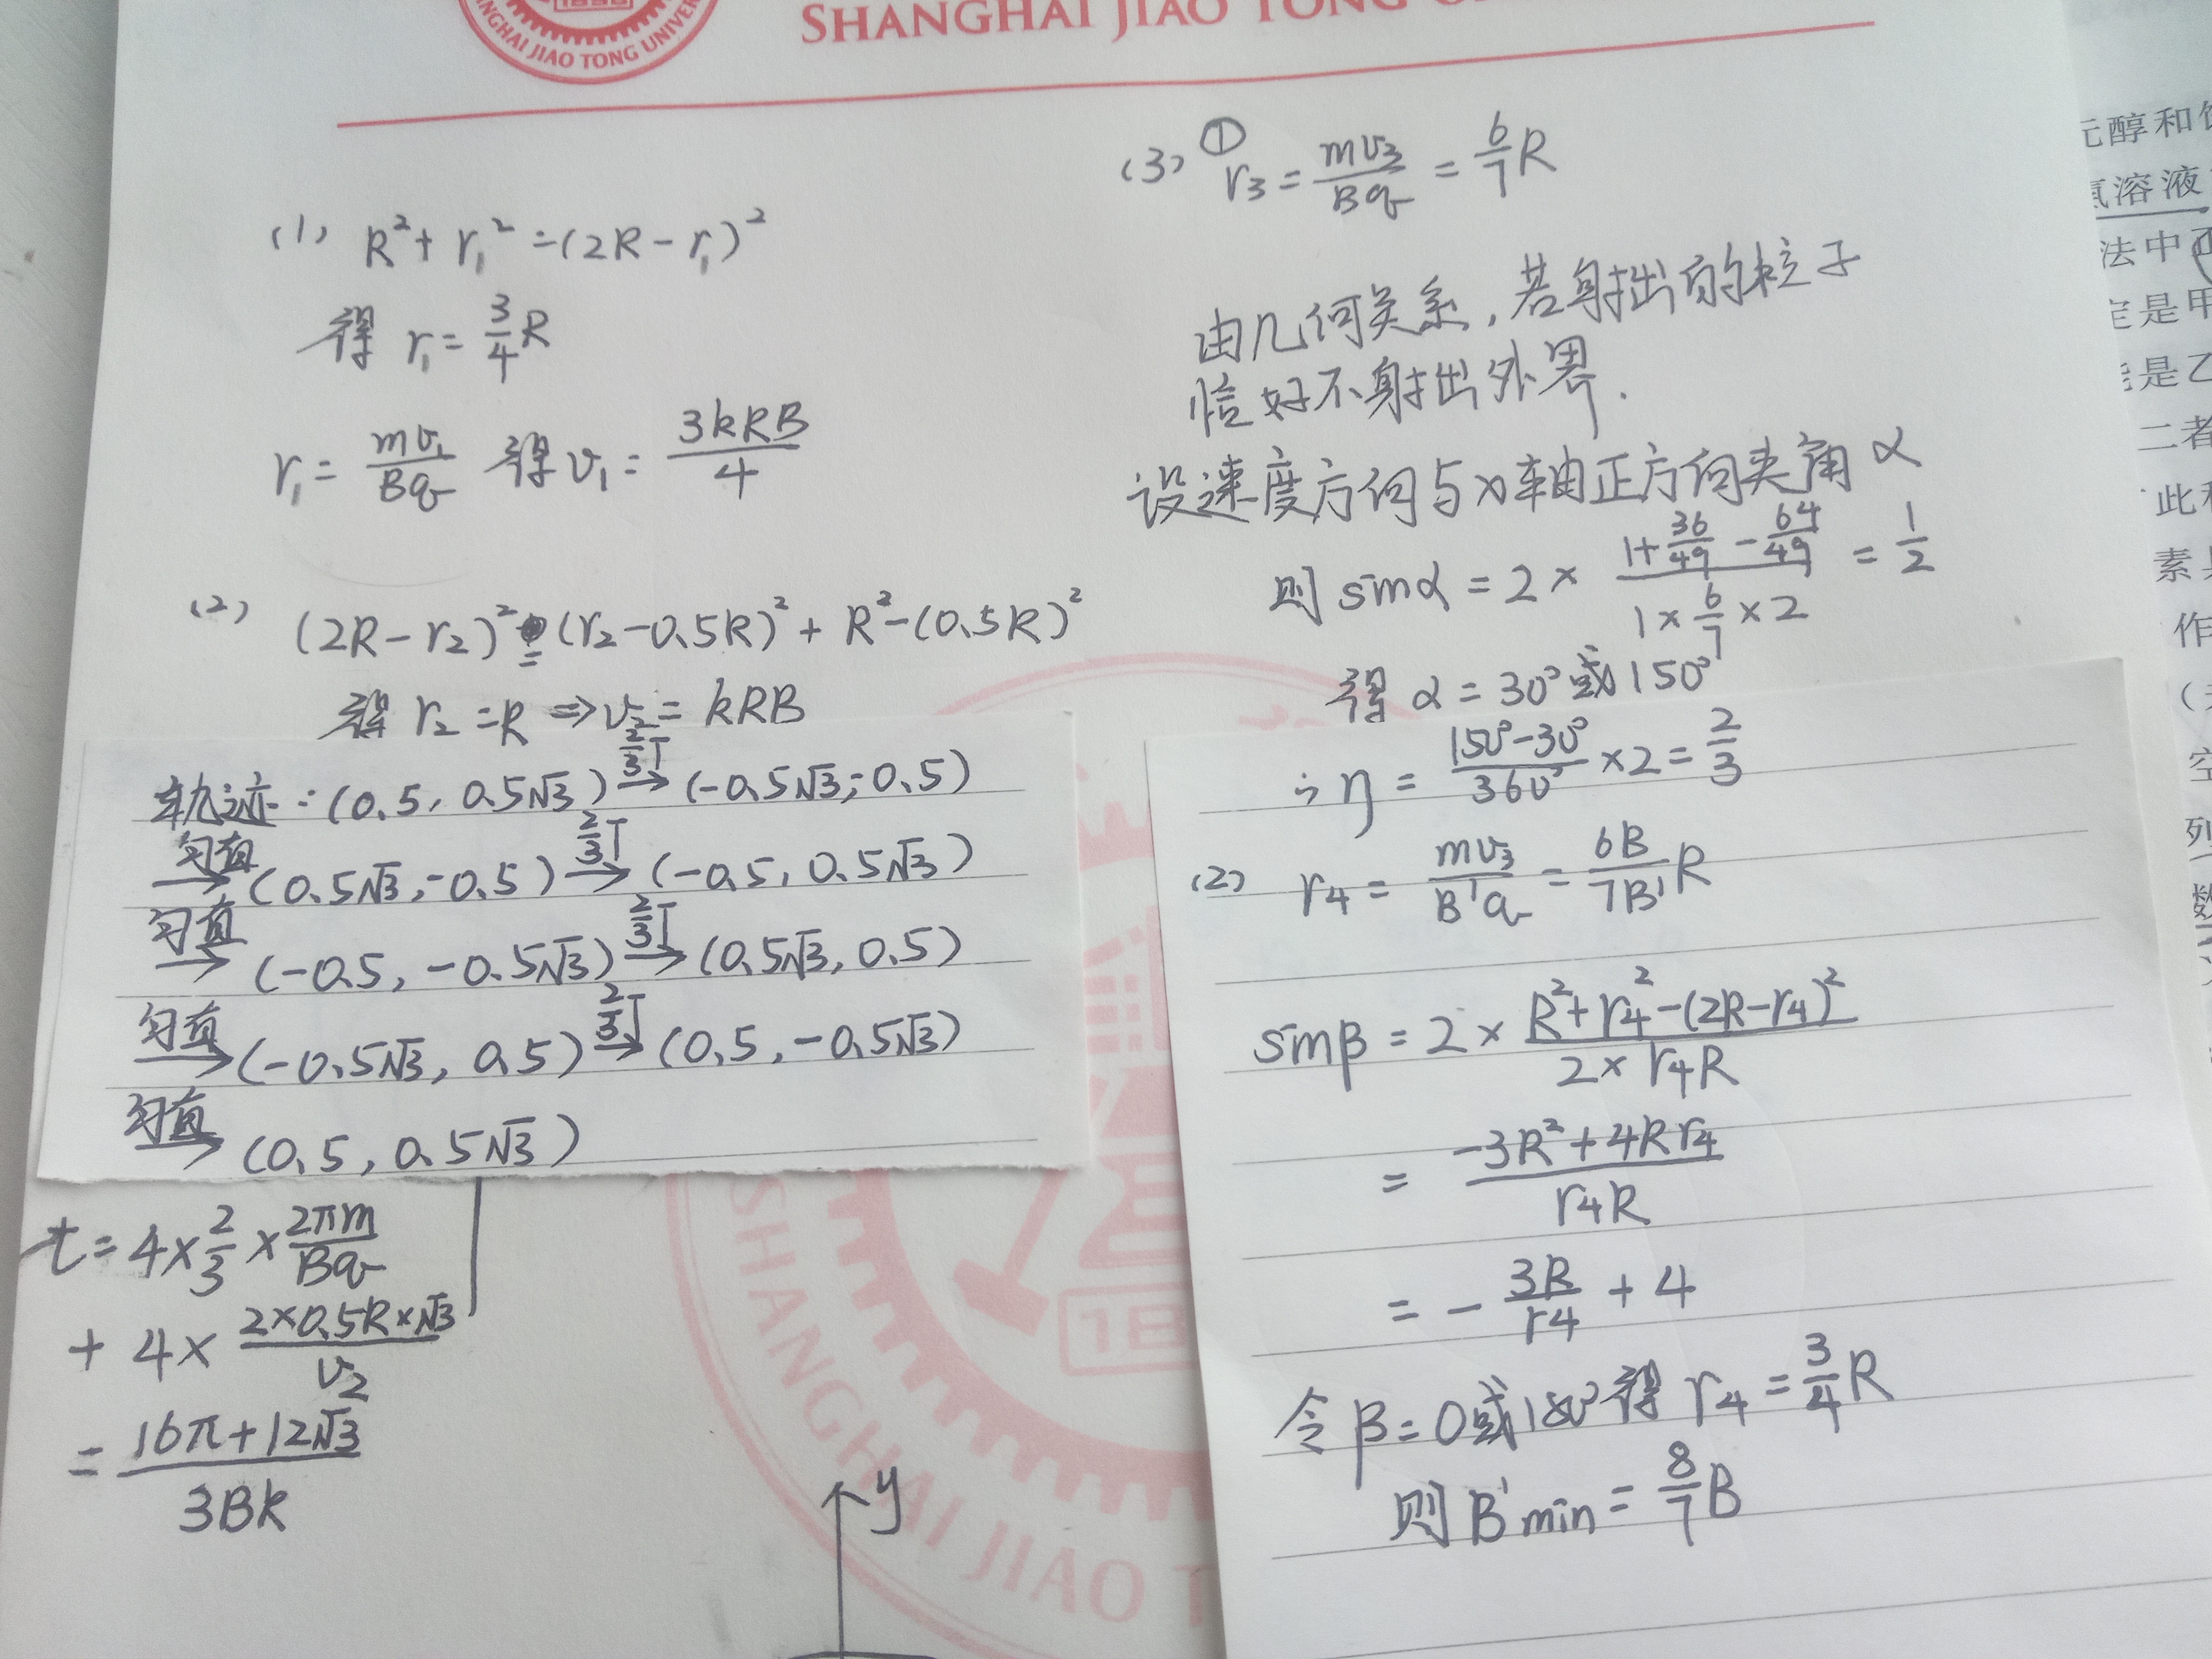 SHANGHAI JIAO TONG
SHANGHAI JIAO TONG UNIVERSITY
(1) R²+r₁²=(2R-r₁)²
得 r₁=3/4R
r₁=mv₁/Bq 得v₁=3kRB/4
(2) (2R-r₂)²=(r₂-0.5R)²+R²-(0.5R)²
得 r₂=R⇒v₂=kRB
轨迹:(0.5, 0.5√3) 2/3T→ (-0.5√3,-0.5)
匀直→(0.5√3,-0.5) 2/3T→ (-0.5, 0.5√3)
匀直→(-0.5, -0.5√3) 2/3T→ (0.5√3, 0.5)
匀直→(-0.5√3, 0.5) 2/3T→ (0.5, -0.5√3)
匀直→(0.5, 0.5√3)
t=4×2/3×2πm/Bq
+4×2×0.5R×√3/v₂
=16π+12√3/3Bk
y
(3) ① r₃=mv₃/Bq=6/7R
由几何关系,若射出的粒子
恰好不射出外界.
设速度方向与x轴正方向夹角α
则 sinα=2×(1+36/49-64/49)/(1×6/7×2)=1/2
得 α=30°或150°
∴η=(150°-30°)/360°×2=2/3
(2) r₄=mv₃/B'q=6B/7B'R
sinβ=2×(R²+r₄²-(2R-r₄)²)/(2×r₄R)
=(-3R²+4Rr₄)/r₄R
=-3R/r₄+4
令β=0或180°得 r₄=3/4R
则 B'min=8/7B
SHANGHAI JIAO T
元醇和
氯溶液
法中
定是甲
是乙
二者
此
素
作
空
列
数